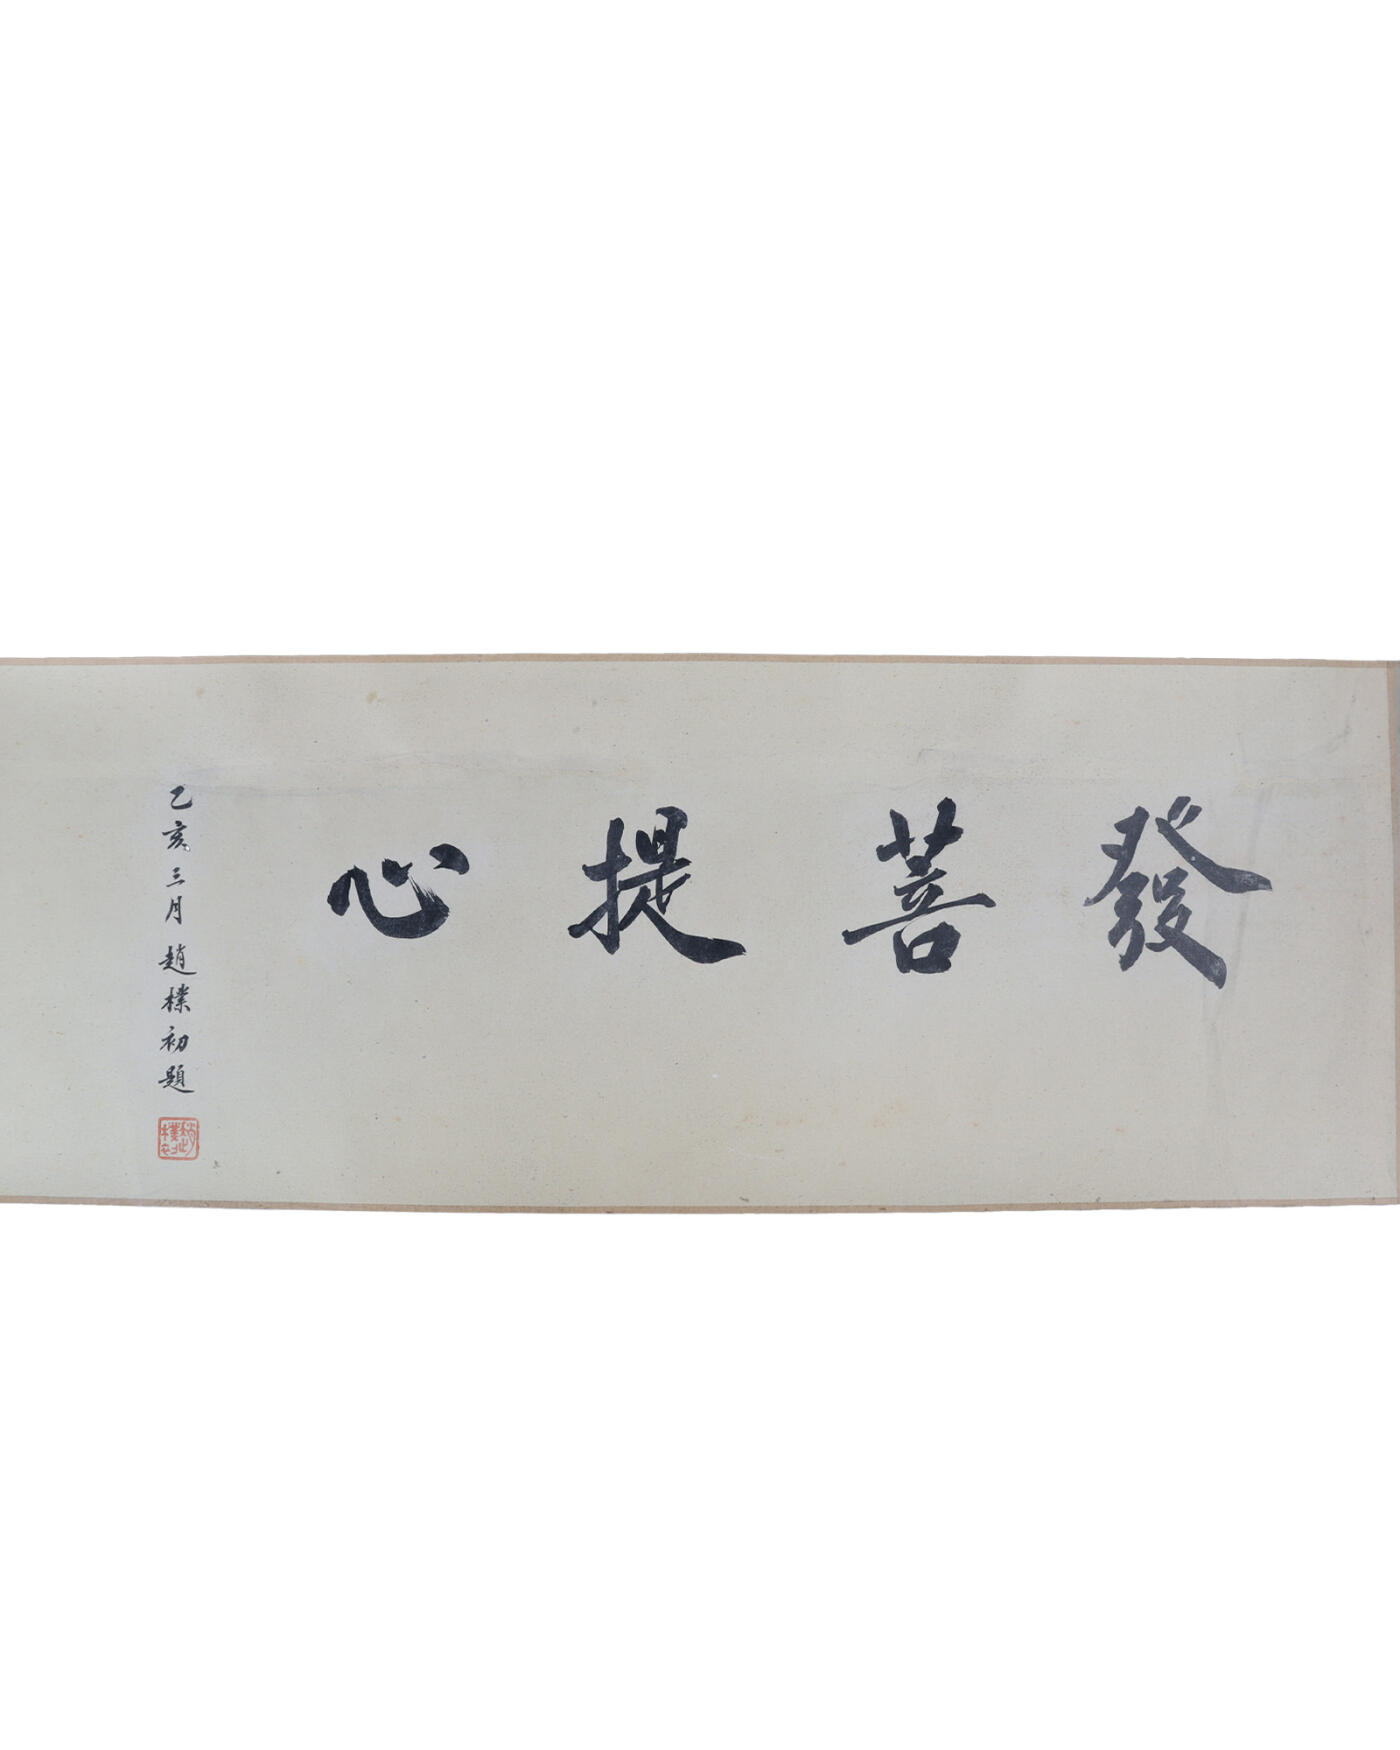 發菩提心
乙亥三月趙樸初題
趙樸初